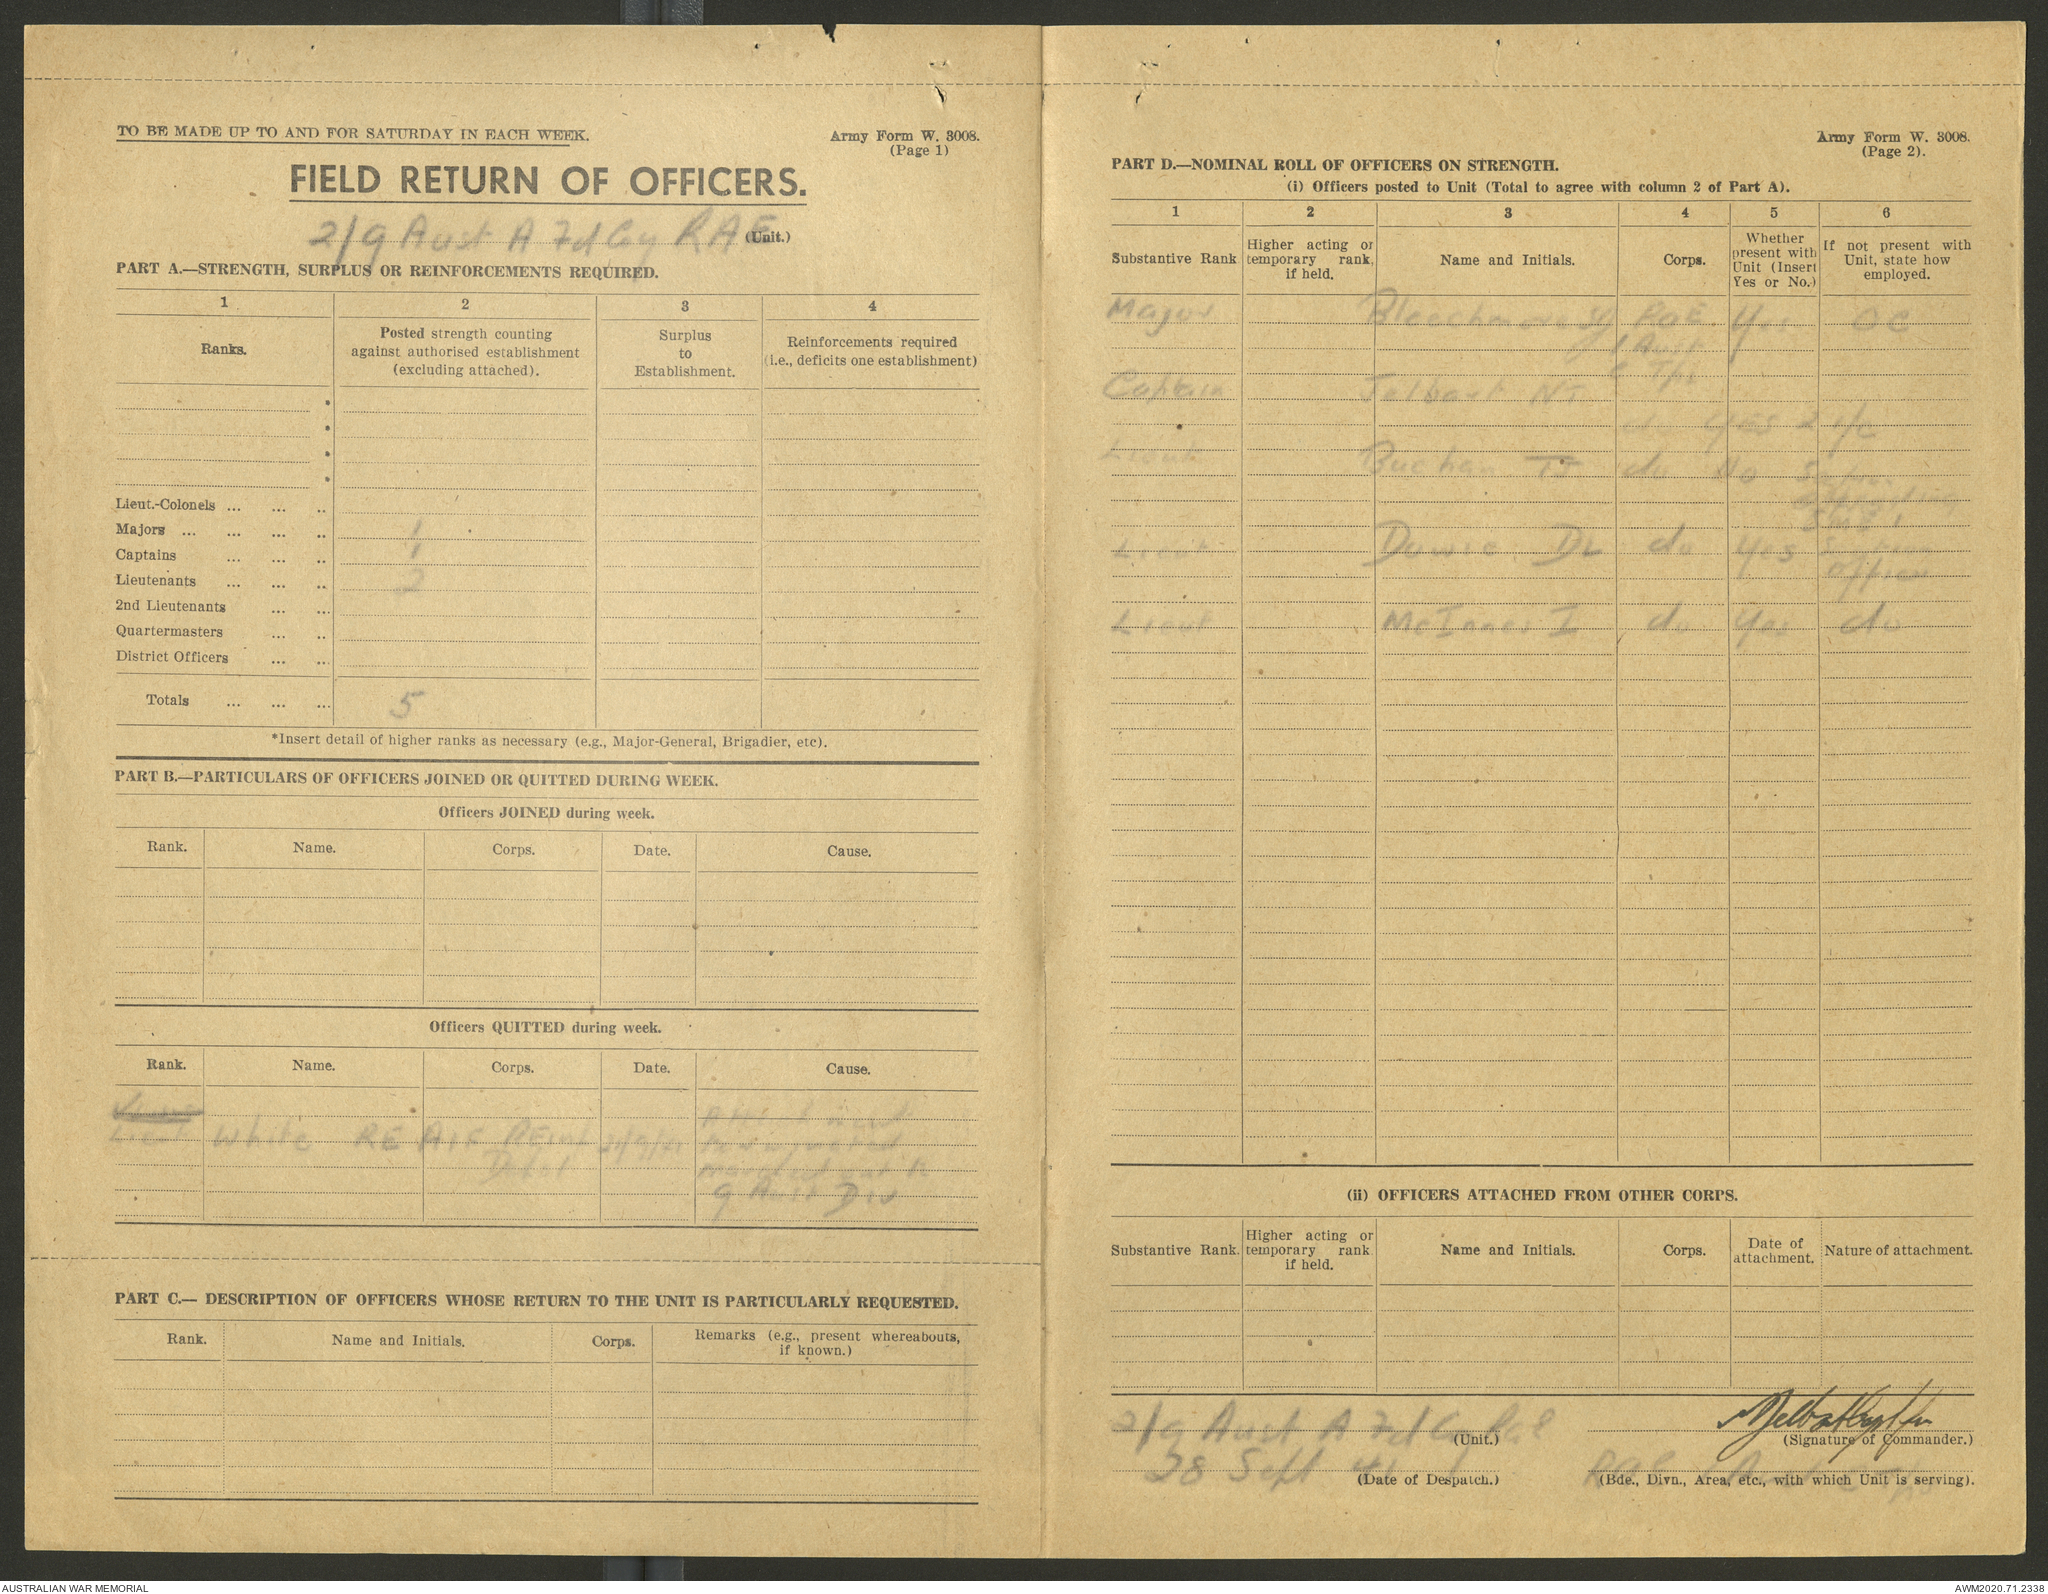 TO BE MADE UP TO AND FOR SATURDAY IN EACH WEEK.
Army Form W. 3008.
(Page 1)
FIELD RETURN OF OFFICERS.
2/9 Aust A Fd Coy RAE (Unit.)
PART A.—STRENGTH, SURPLUS OR REINFORCEMENTS REQUIRED.
1 2 3 4
Ranks.
Posted strength counting
against authorised establishment
(excluding attached).
Surplus
to
Establishment.
Reinforcements required
(i.e., deficits one establishment)
*
*
*
*
Lieut.-Colonels ... ... ..
Majors ... ... ... .. 1
Captains ... ... .. 1
Lieutenants ... ... .. 2
2nd Lieutenants ... ..
Quartermasters ... ..
District Officers ... ...
Totals ... ... ... 5
*Insert detail of higher ranks as necessary (e.g., Major-General, Brigadier, etc).
PART B.—PARTICULARS OF OFFICERS JOINED OR QUITTED DURING WEEK.
Officers JOINED during week.
Rank. Name. Corps. Date. Cause.
Officers QUITTED during week.
Rank. Name. Corps. Date. Cause.
Lieut White RE AIF
9 Aust Div
PART C.— DESCRIPTION OF OFFICERS WHOSE RETURN TO THE UNIT IS PARTICULARLY REQUESTED.
Rank. Name and Initials. Corps. Remarks (e.g., present whereabouts,
if known.)
Army Form W. 3008.
(Page 2).
PART D.—NOMINAL ROLL OF OFFICERS ON STRENGTH.
(i) Officers posted to Unit (Total to agree with column 2 of Part A).
1 2 3 4 5 6
Substantive Rank
Higher acting or
temporary rank,
if held.
Name and Initials.
Corps.
Whether
present with
Unit (Insert
Yes or No.)
If not present with
Unit, state how
employed.
Major RAE Yes OC
1 Aust
C Tps
Captain Jolbart NT
do YES 2 i/c
Lieut Buchan TJ do No
Lieut Dowie DL do Yes
Officer
Lieut McInnes I do Yes do
(ii) OFFICERS ATTACHED FROM OTHER CORPS.
Substantive Rank.
Higher acting or
temporary rank
if held.
Name and Initials.
Corps.
Date of
attachment.
Nature of attachment.
2/9 Aust A Fd Coy RAE
(Unit.)
(Signature of Commander.)
28 Sept 41
(Date of Despatch.)
(Bde., Divn., Area, etc., with which Unit is serving).
AUSTRALIAN WAR MEMORIAL
AWM2020.71.2338